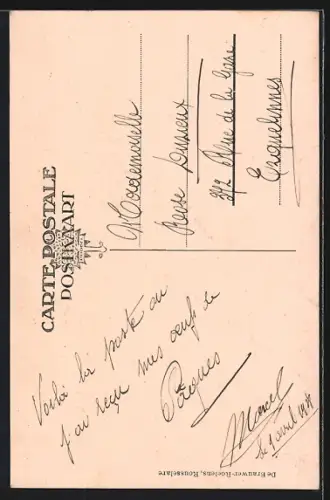 CARTE POSTALE
POSTKAART
Mademoiselle
Rose
372 Rue de la Gare
Erquelinnes
Voilà la poste ou
j'ai reçu mes oeufs de
Pâques
Marcel
le 9 avril
De Brauwer-Roelens, Rousselare